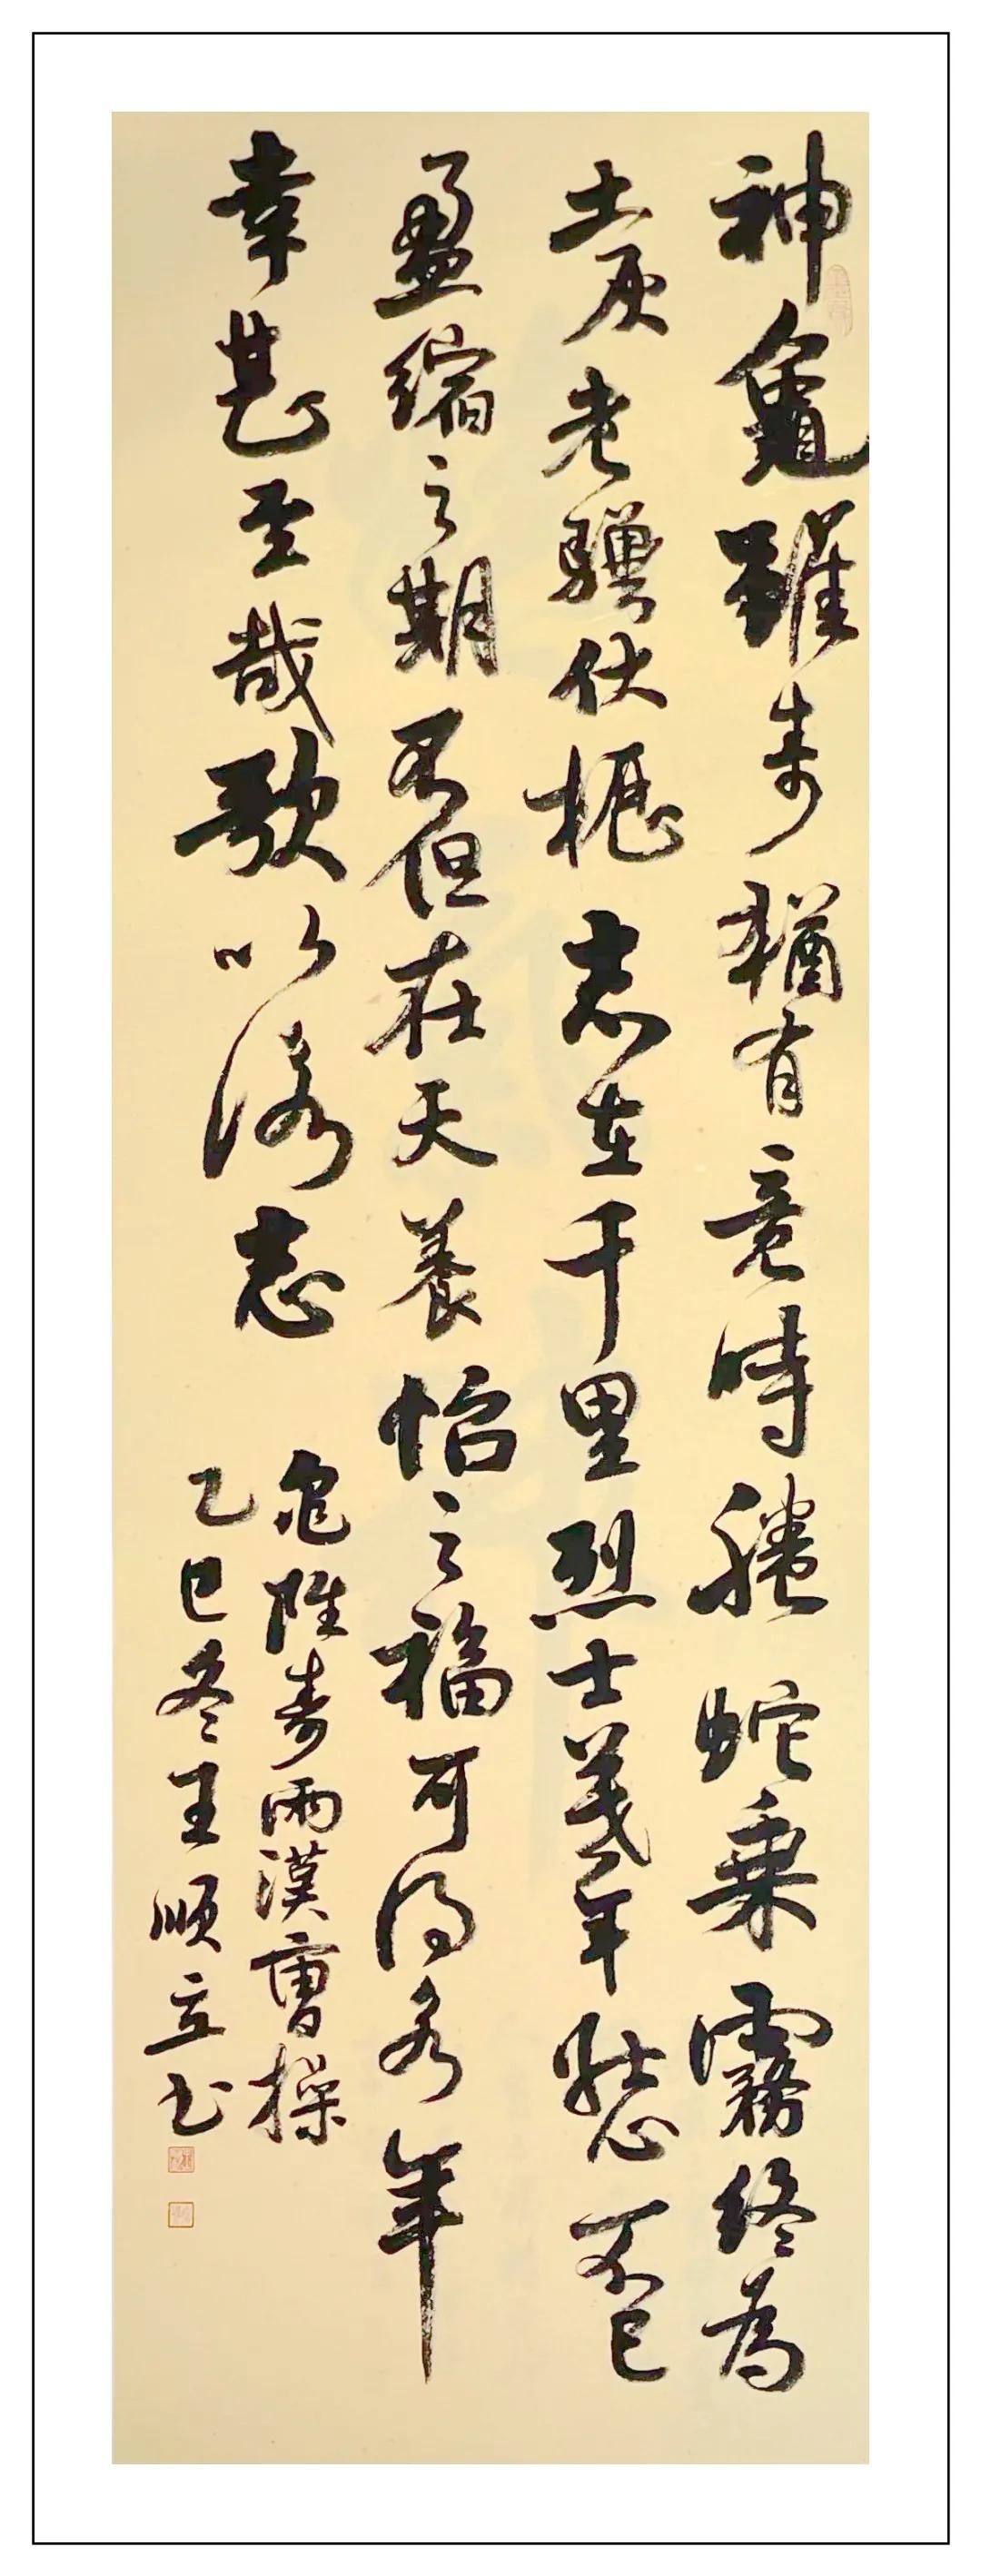 神龜雖寿猶有竟時騰蛇乘霧終為
土灰老驥伏櫪志在千里烈士暮年壯心不已
盈縮之期不但在天養怡之福可得永年
幸甚至哉歌以詠志
龟雖寿兩漢曹操
乙巳冬王順立书